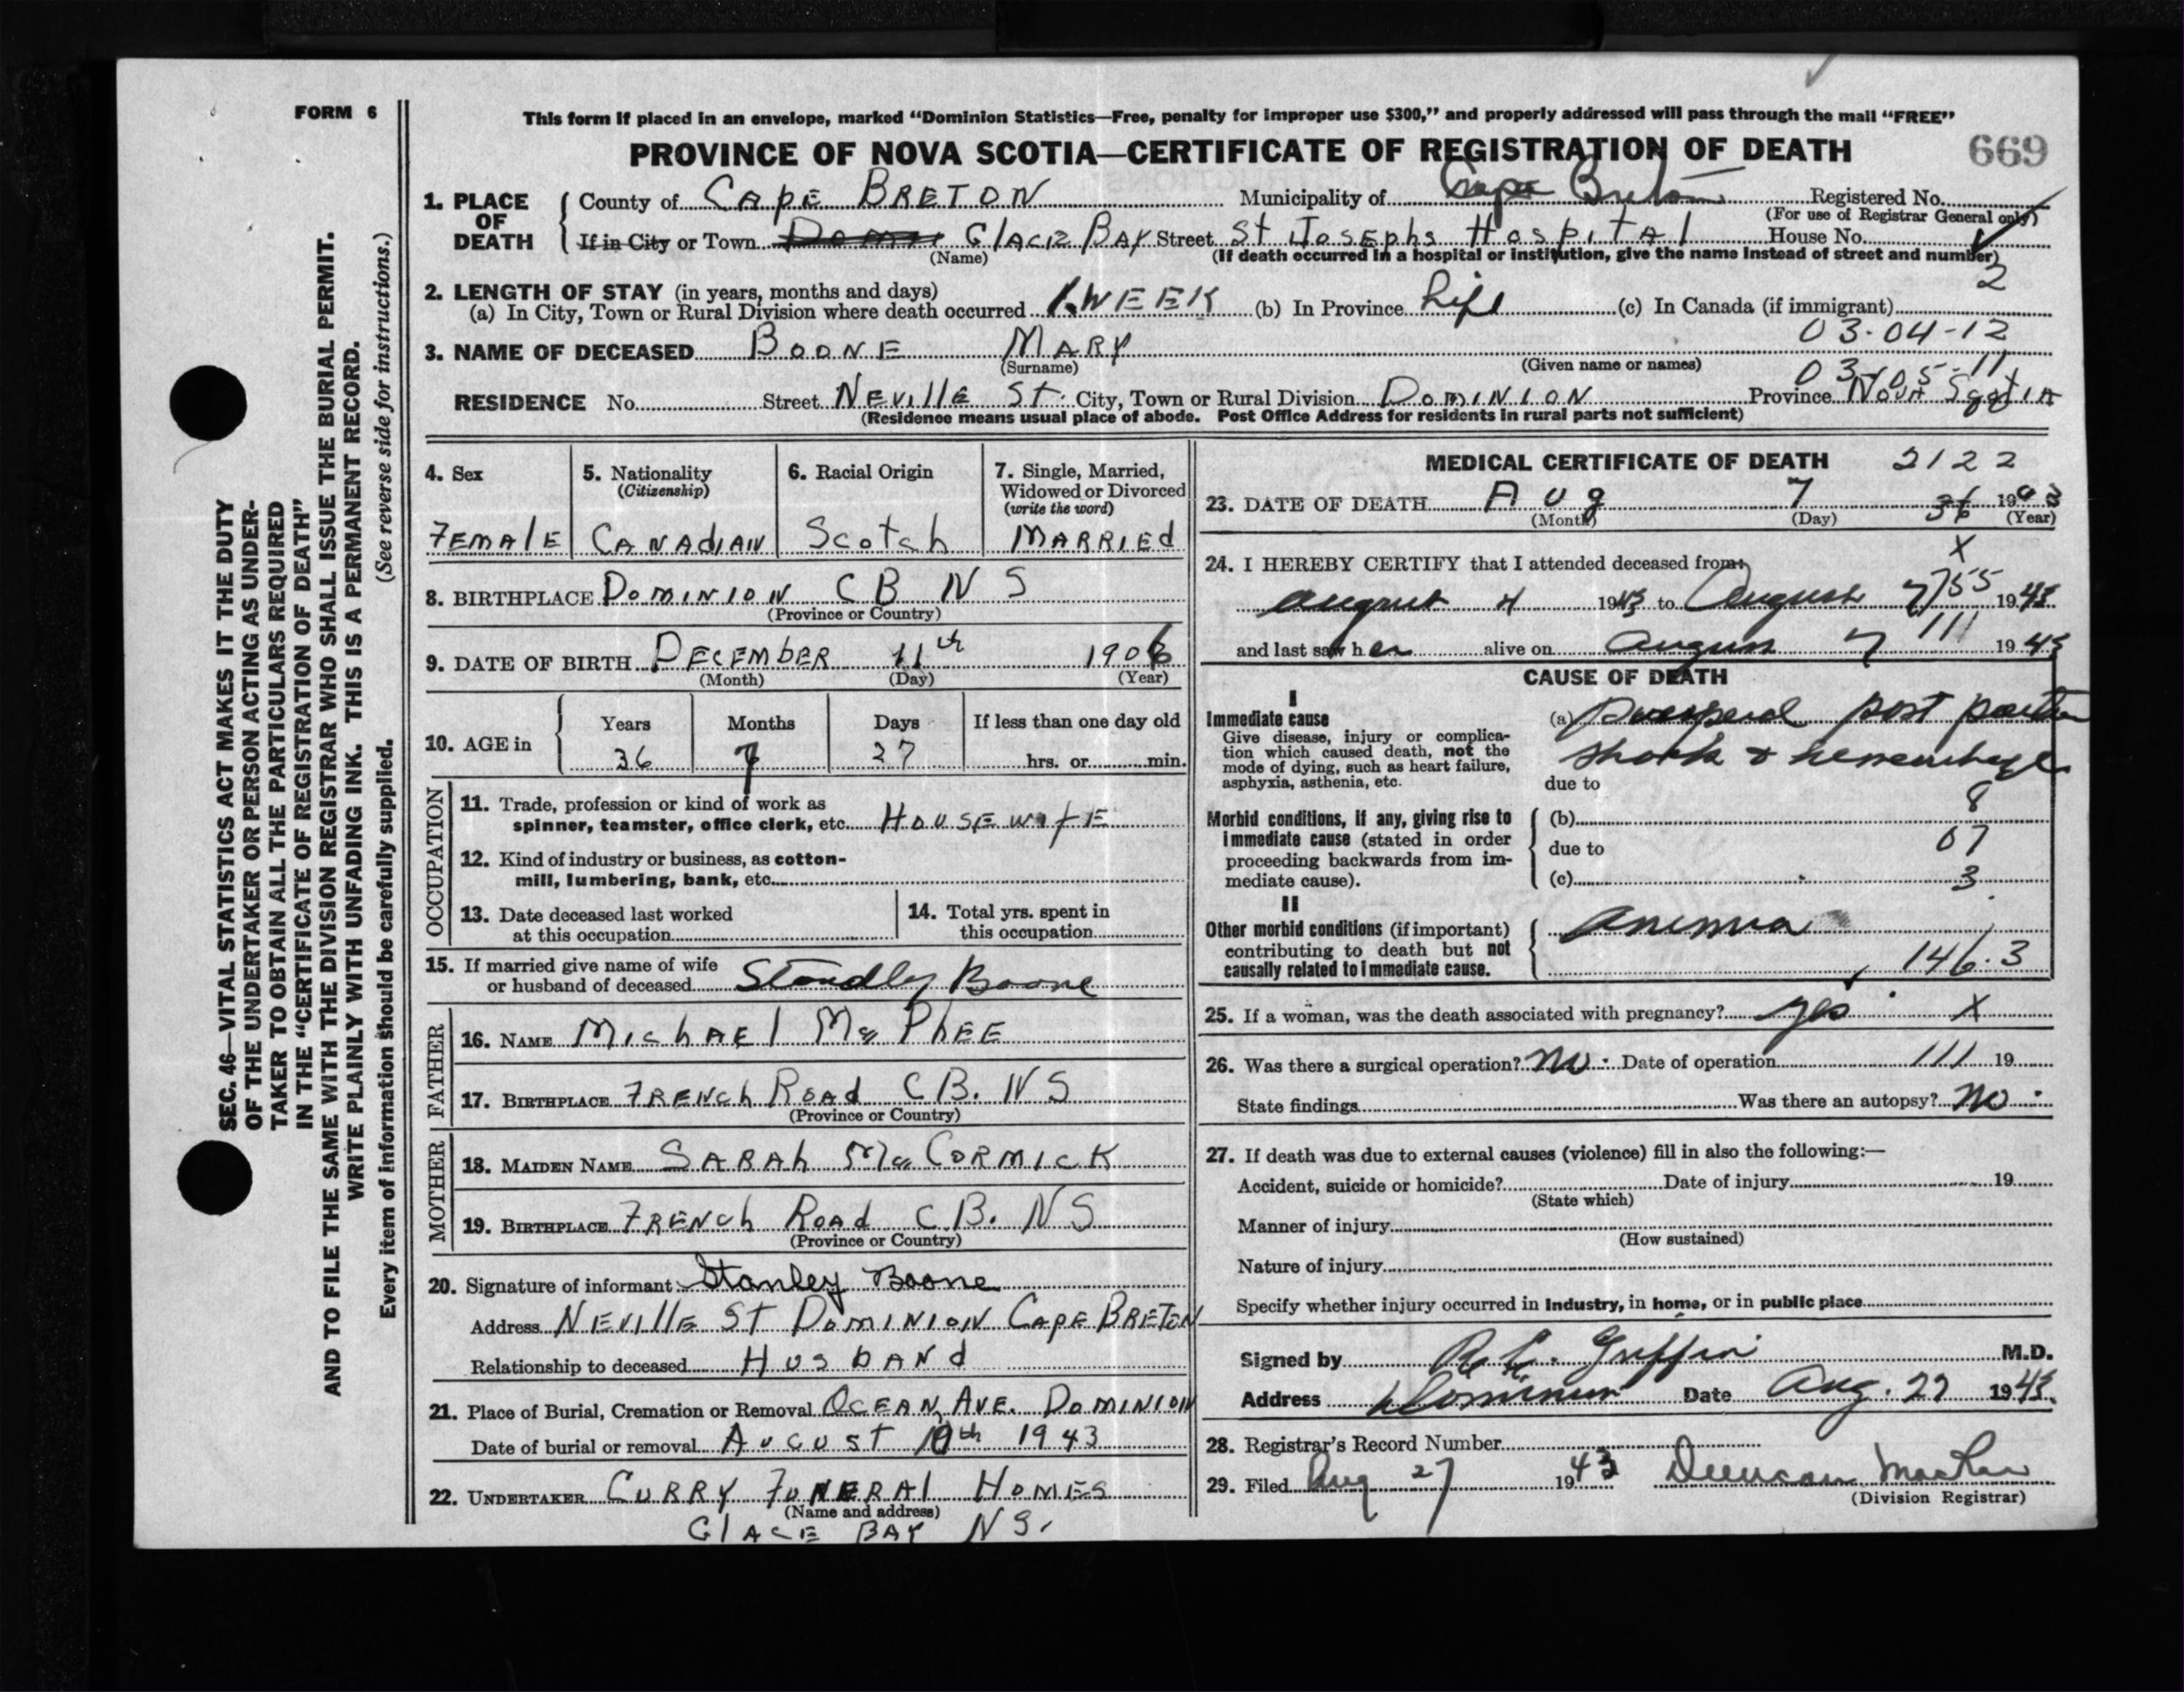 FORM 6
This form if placed in an envelope, marked “Dominion Statistics—Free, penalty for improper use $300,” and properly addressed will pass through the mail “FREE”
PROVINCE OF NOVA SCOTIA—CERTIFICATE OF REGISTRATION OF DEATH 669
1. PLACE OF DEATH
County of CAPE BRETON Municipality of Cape Breton Registered No.
(For use of Registrar General only)
If in City or Town GLACE BAY Street ST JOSEPHS HOSPITAL House No.
(Name) (If death occurred in a hospital or institution, give the name instead of street and number)
2
2. LENGTH OF STAY (in years, months and days)
(a) In City, Town or Rural Division where death occurred 1 WEEK (b) In Province Life (c) In Canada (if immigrant)
03-04-12
3. NAME OF DECEASED BOONE MARY
(Surname) (Given name or names)
03-05-11
RESIDENCE No. Street NEVILLE ST. City, Town or Rural Division DOMINION Province NOVA SCOTIA
(Residence means usual place of abode. Post Office Address for residents in rural parts not sufficient)
4. Sex
FEMALE
5. Nationality
(Citizenship)
CANADIAN
6. Racial Origin
Scotch
7. Single, Married,
Widowed or Divorced
(write the word)
MARRIED
8. BIRTHPLACE DOMINION CB NS
(Province or Country)
9. DATE OF BIRTH DECEMBER 11th 1906
(Month) (Day) (Year)
10. AGE in
Years Months Days If less than one day old
36 7 27 hrs. or min.
OCCUPATION
11. Trade, profession or kind of work as
spinner, teamster, office clerk, etc. HOUSEWIFE
12. Kind of industry or business, as cotton-
mill, lumbering, bank, etc.
13. Date deceased last worked
at this occupation
14. Total yrs. spent in
this occupation
15. If married give name of wife
or husband of deceased Standley Boone
FATHER
16. NAME MICHAEL McPHEE
17. BIRTHPLACE FRENCH ROAD CB. NS
(Province or Country)
MOTHER
18. MAIDEN NAME SARAH McCORMICK
19. BIRTHPLACE FRENCH ROAD C.B. NS
(Province or Country)
20. Signature of informant Stanley Boone
Address NEVILLE ST DOMINION CAPE BRETON
Relationship to deceased HUSBAND
21. Place of Burial, Cremation or Removal OCEAN AVE. DOMINION
Date of burial or removal AUGUST 10th 1943
22. UNDERTAKER CURRY FUNERAL HOMES
(Name and address)
GLACE BAY NS.
MEDICAL CERTIFICATE OF DEATH 2122
23. DATE OF DEATH Aug 7 36 1943
(Month) (Day) (Year)
X
24. I HEREBY CERTIFY that I attended deceased from:
August 4 1943 to August 7 55 1943
111
and last saw her alive on August 7 1943
CAUSE OF DEATH
I
Immediate cause
Give disease, injury or complica-
tion which caused death, not the
mode of dying, such as heart failure,
asphyxia, asthenia, etc.
(a) Puerperal post partum
shock & hemorrhage
due to
8
Morbid conditions, if any, giving rise to
immediate cause (stated in order
proceeding backwards from im-
mediate cause).
(b)
due to 07
(c) 3
II
Other morbid conditions (if important)
contributing to death but not
causally related to immediate cause.
Anemia
146.3
25. If a woman, was the death associated with pregnancy? yes X
26. Was there a surgical operation? No. Date of operation 111 19
State findings Was there an autopsy? No.
27. If death was due to external causes (violence) fill in also the following:—
Accident, suicide or homicide? Date of injury 19
(State which)
Manner of injury
(How sustained)
Nature of injury
Specify whether injury occurred in Industry, in home, or in public place
Signed by Griffin M.D.
Address Dominion Date Aug. 27 1943.
28. Registrar's Record Number
29. Filed Aug 27 1943 Duncan MacRae
(Division Registrar)
SEC. 46—VITAL STATISTICS ACT MAKES IT THE DUTY
OF THE UNDERTAKER OR PERSON ACTING AS UNDER-
TAKER TO OBTAIN ALL THE PARTICULARS REQUIRED
IN THE “CERTIFICATE OF REGISTRATION OF DEATH”
AND TO FILE THE SAME WITH THE DIVISION REGISTRAR WHO SHALL ISSUE THE BURIAL PERMIT.
WRITE PLAINLY WITH UNFADING INK. THIS IS A PERMANENT RECORD.
Every item of information should be carefully supplied. (See reverse side for instructions.)